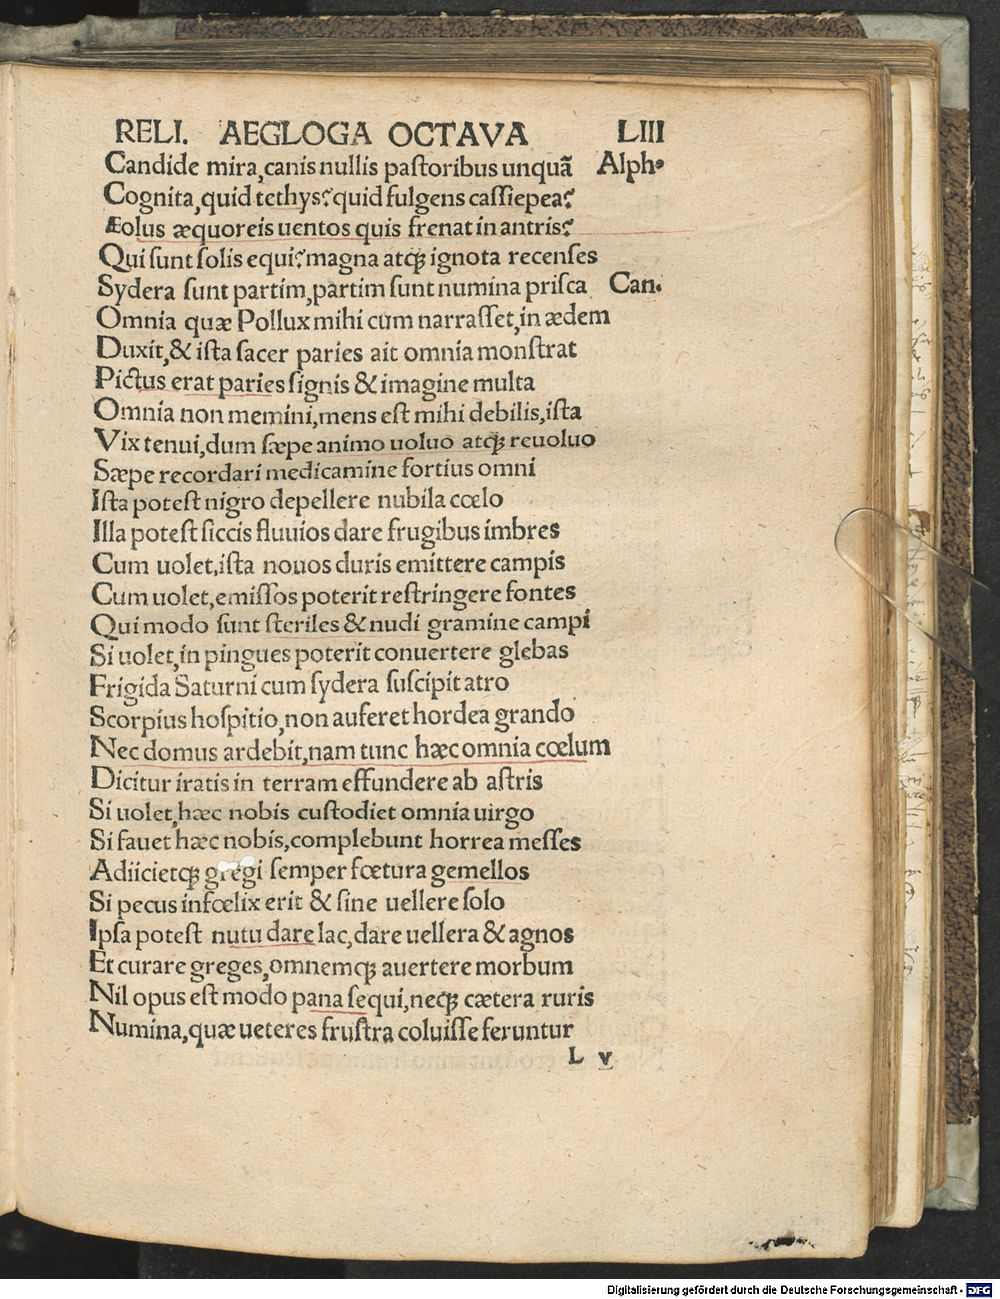 RELI. AEGLOGA OCTAVA LIII
Candide mira,canis nullis paſtoribus unquã Alph.
Cognita,quid tethys?quid fulgens caſſiepea?
Æolus æquoreis uentos quis frenat in antris?
Qui ſunt ſolis equi?magna atqꝫ ignota recenſes
Sydera ſunt partim,partim ſunt numina priſca Can.
Omnia quæ Pollux mihi cum narraſſet,in ædem
Duxit,& iſta ſacer paries ait omnia monſtrat
Pictus erat paries ſignis & imagine multa
Omnia non memini,mens eſt mihi debilis,iſta
Vix tenui,dum ſæpe animo uoluo atqꝫ reuoluo
Sæpe recordari medicamine fortius omni
Iſta poteſt nigro depellere nubila cœlo
Illa poteſt ſiccis fluuios dare frugibus imbres
Cum uolet,iſta nouos duris emittere campis
Cum uolet,emiſſos poterit reſtringere fontes
Qui modo ſunt ſteriles & nudi gramine campi
Si uolet,in pingues poterit conuertere glebas
Frigida Saturni cum ſydera ſuſcipit atro
Scorpius hoſpitio,non auferet hordea grando
Nec domus ardebit,nam tunc hæc omnia cœlum
Dicitur iratis in terram effundere ab aſtris
Si uolet,hæc nobis cuſtodiet omnia uirgo
Si fauet hæc nobis,complebunt horrea meſſes
Adiicietqꝫ gregi ſemper fœtura gemellos
Si pecus infœlix erit & ſine uellere ſolo
Ipſa poteſt nutu dare lac,dare uellera & agnos
Et curare greges,omnemqꝫ auertere morbum
Nil opus eſt modo pana ſequi,neqꝫ cætera ruris
Numina,quæ ueteres fruſtra coluiſſe feruntur
L v
Digitalisierung gefördert durch die Deutsche Forschungsgemeinschaft - DFG